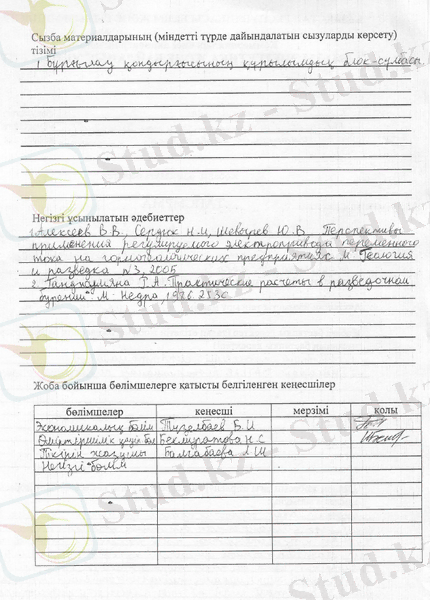 Сызба материалдарының (міндетті түрде дайындалатын сызуларды көрсету)
тізімі
1 Бұрғылау қондырғысының құрылымдық блок-сұлбасы
Негізгі ұсынылатын әдебиеттер
1. Алексеев В.В., Сердюк Н.И, Шевырев Ю.В. Перспективы
применения регулируемого электропривода переменного
тока на горно предприятиях М. Геология
и разведка №3, 2005
2. Р.А. Практические расчеты в разведочном
бурении М. Недра, 1986 253с
Жоба бойынша бөлімшелерге қатысты белгіленген кеңесшілер
бөлімшелер кеңесші мерзімі қолы
Экономикалық бөлім Тузелбаев Б.И
Өміртіршілік қауіп бөл Бекмуратова Н.С
Пікірін жазушы Балгабаева Л.Ш
Негізгі бөлім
Stud.kz - Stud.kz